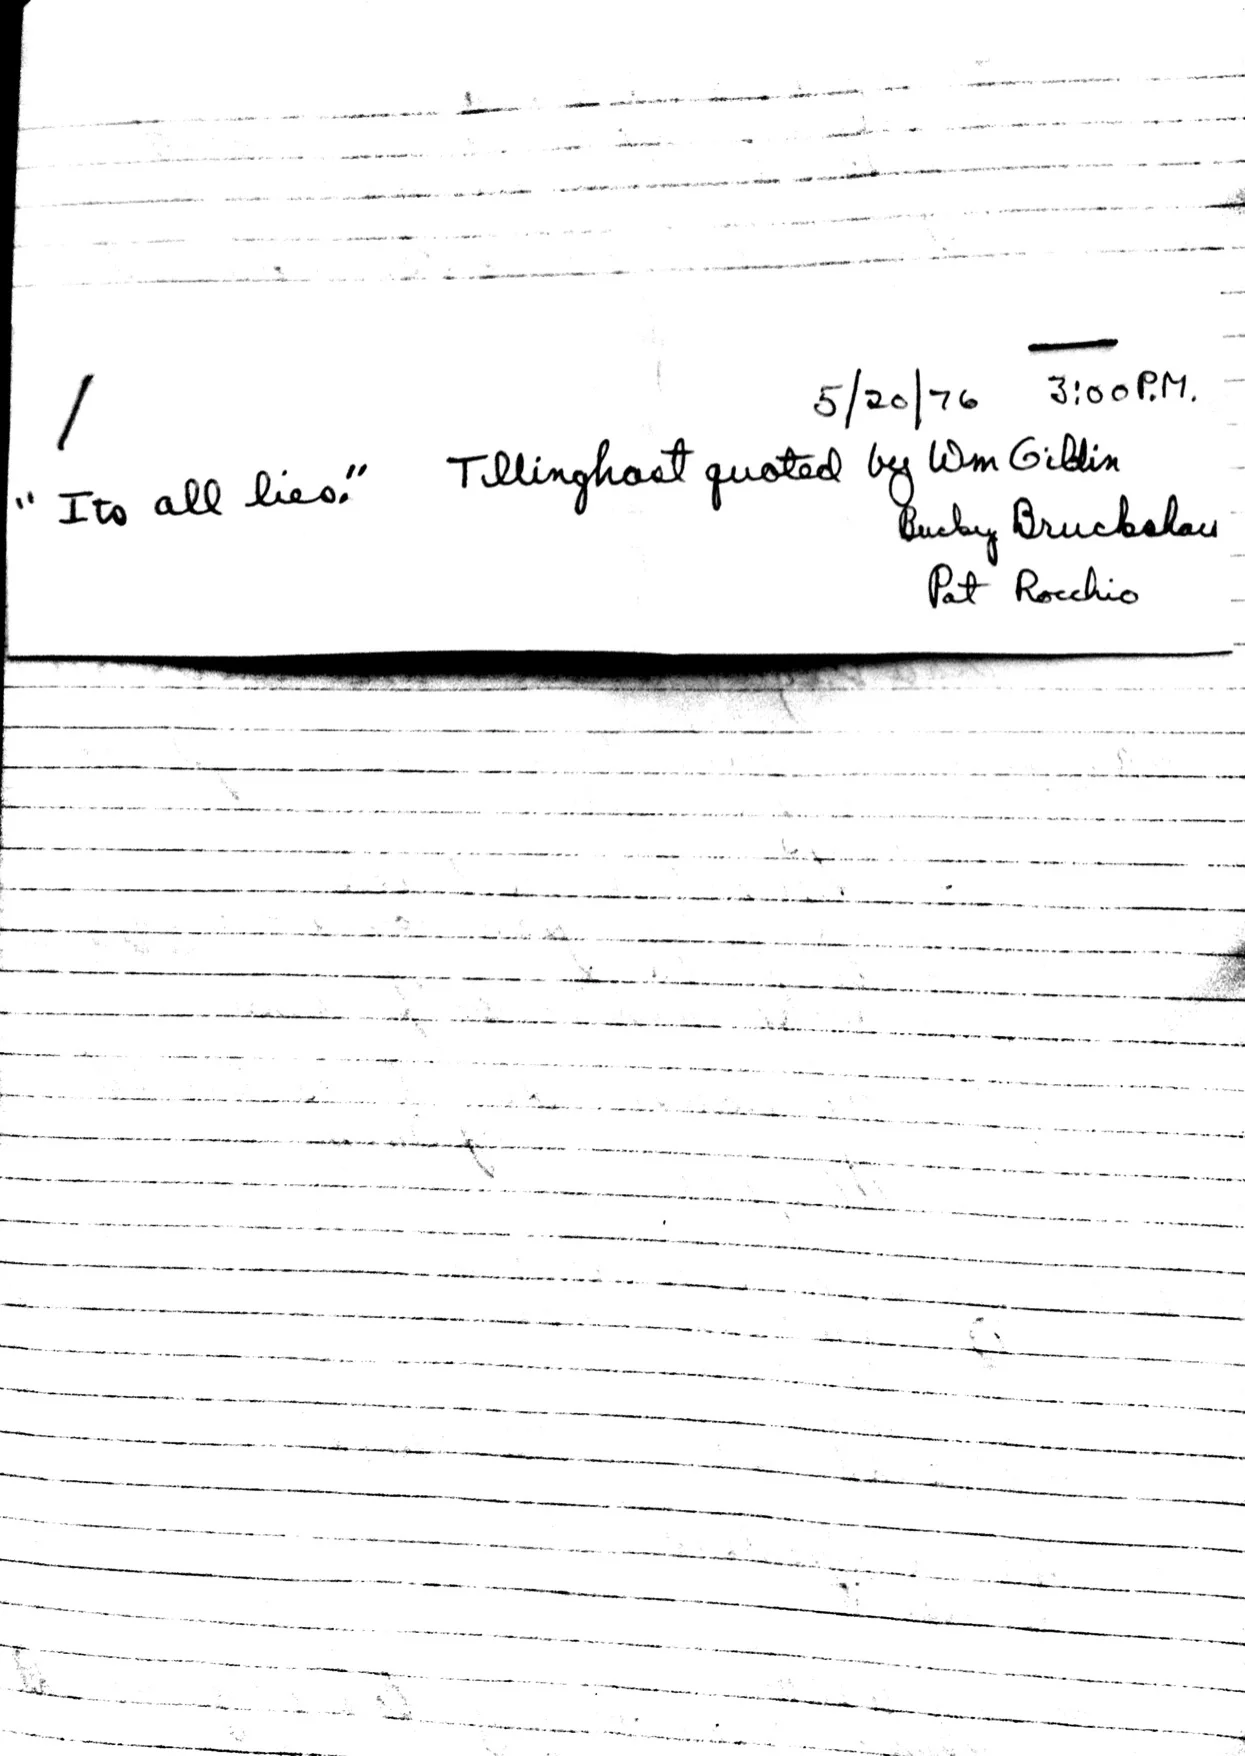 5/20/76 3:00 P.M.
"Its all lies." Tillinghast quoted by Wm Gildin
Bucky Bruckshaw
Pat Rocchio